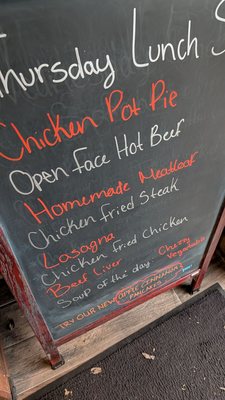 Thursday Lunch S
Chicken Pot Pie
Open Face Hot Beef
Homemade Meatloaf
Chicken fried Steak
Lasagna
Chicken fried Chicken
Beef Liver
Soup of the day - Cheesy
Vegetable
TRY OUR NEW
PANCAKES